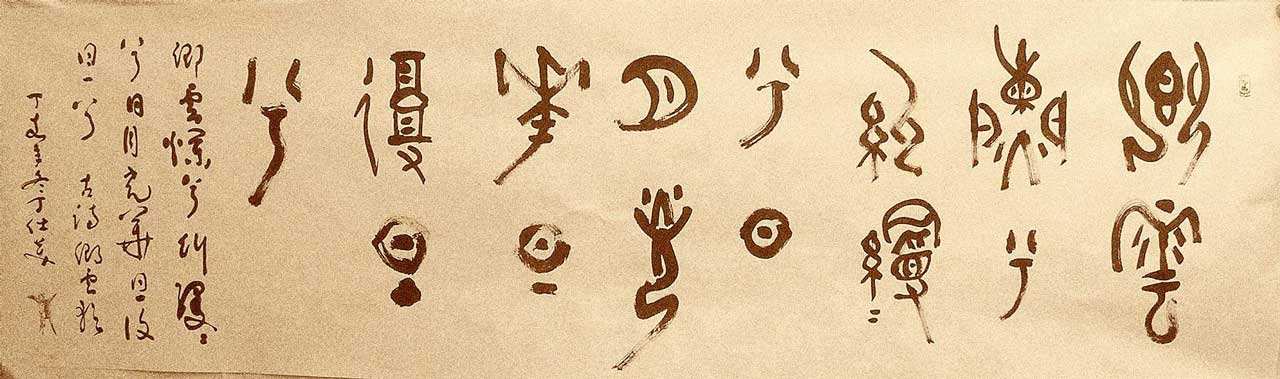 卿雲
爛兮
糺縵〻
兮日
月光
華旦
復旦
兮
卿雲爛兮糾縵〻
兮日月光華旦復
旦兮 古詩卿雲歌
丁亥年冬丁仕美